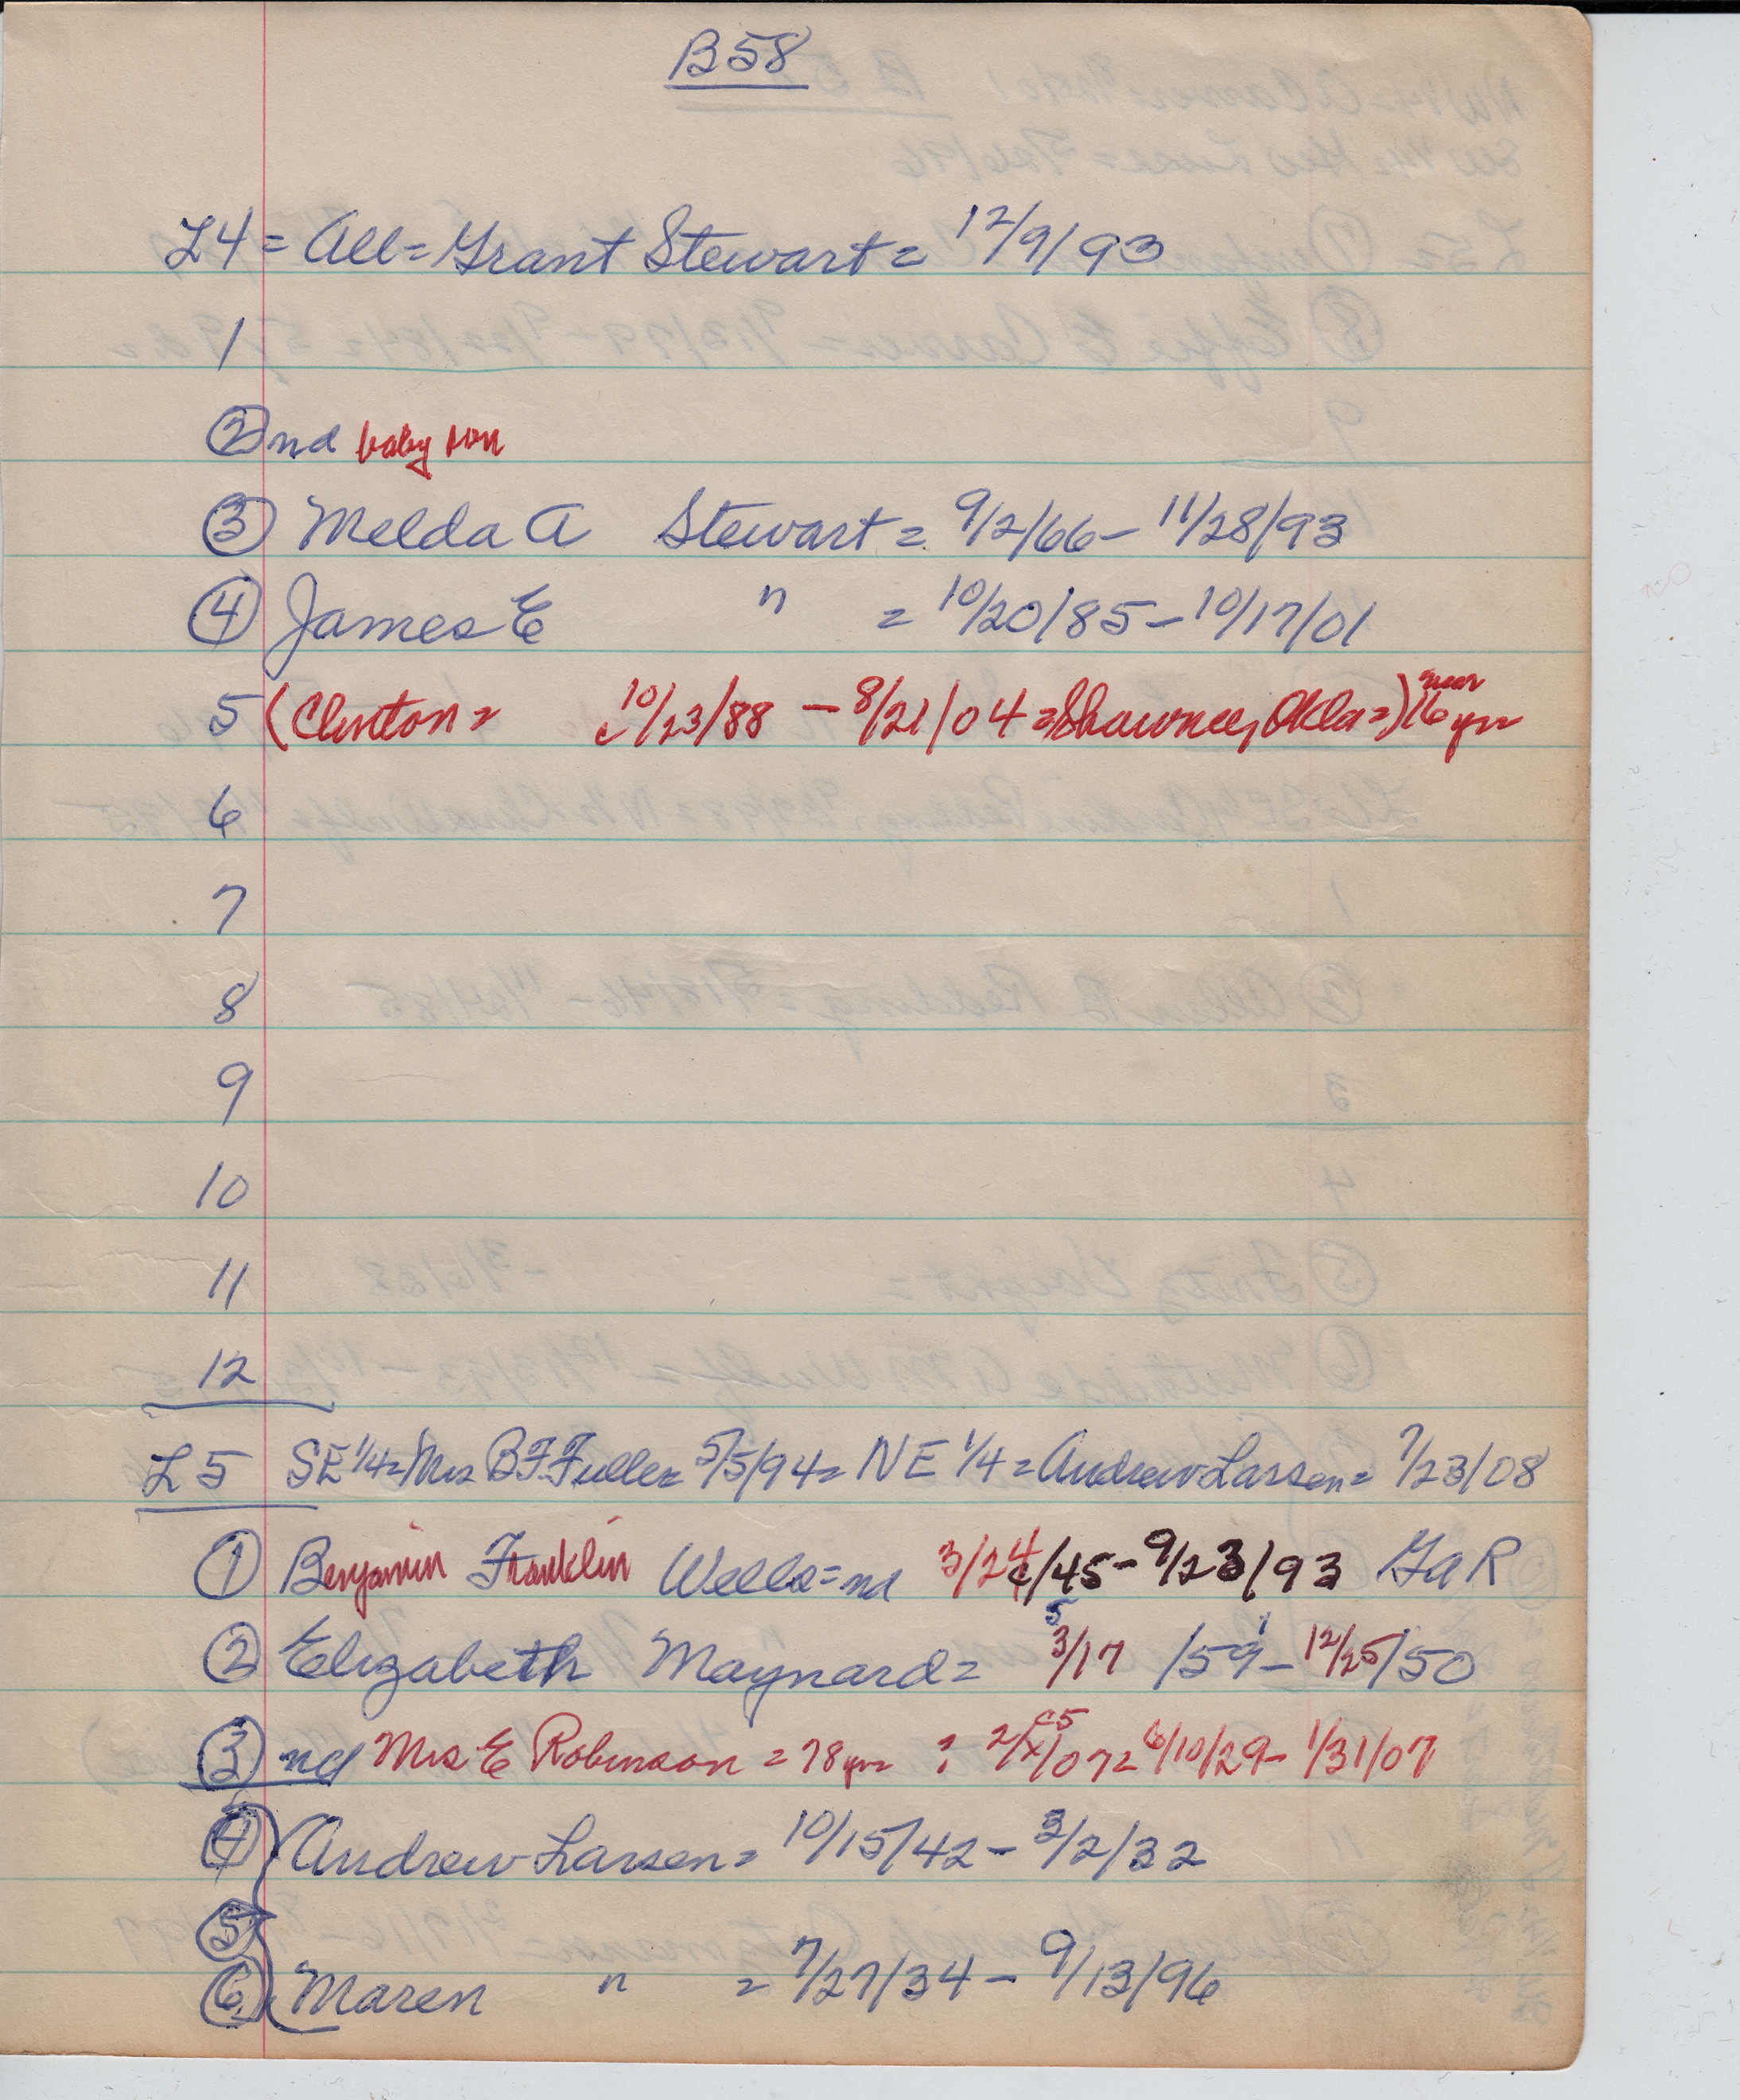 B58
L4 = All = Grant Stewart = 12/9/93
1
② nd baby son
③ Melda A Stewart = 9/2/66 - 11/28/93
④ James E " = 10/20/85 - 10/17/01
5 (Clinton = 10/23/88 - 8/21/04 = Shawnee, Okla =) near 16 yrs
6
7
8
9
10
11
12
L5 SE 1/4 = Mrs B F Fuller = 5/5/94 = NE 1/4 = Andrew Larsen = 7/23/08
① Benjamin Franklin Wells = nd 3/24/45 - 9/23/93 GAR
② Elizabeth Maynard = 3/17 /59 - 12/25/50
③ nd Mrs E Robinson = 78 yrs : 2/ /07 = 6/10/29 - 1/31/07
④ Andrew Larsen = 10/15/42 - 3/2/32
⑤
⑥ Maren " = 7/27/34 - 9/13/96